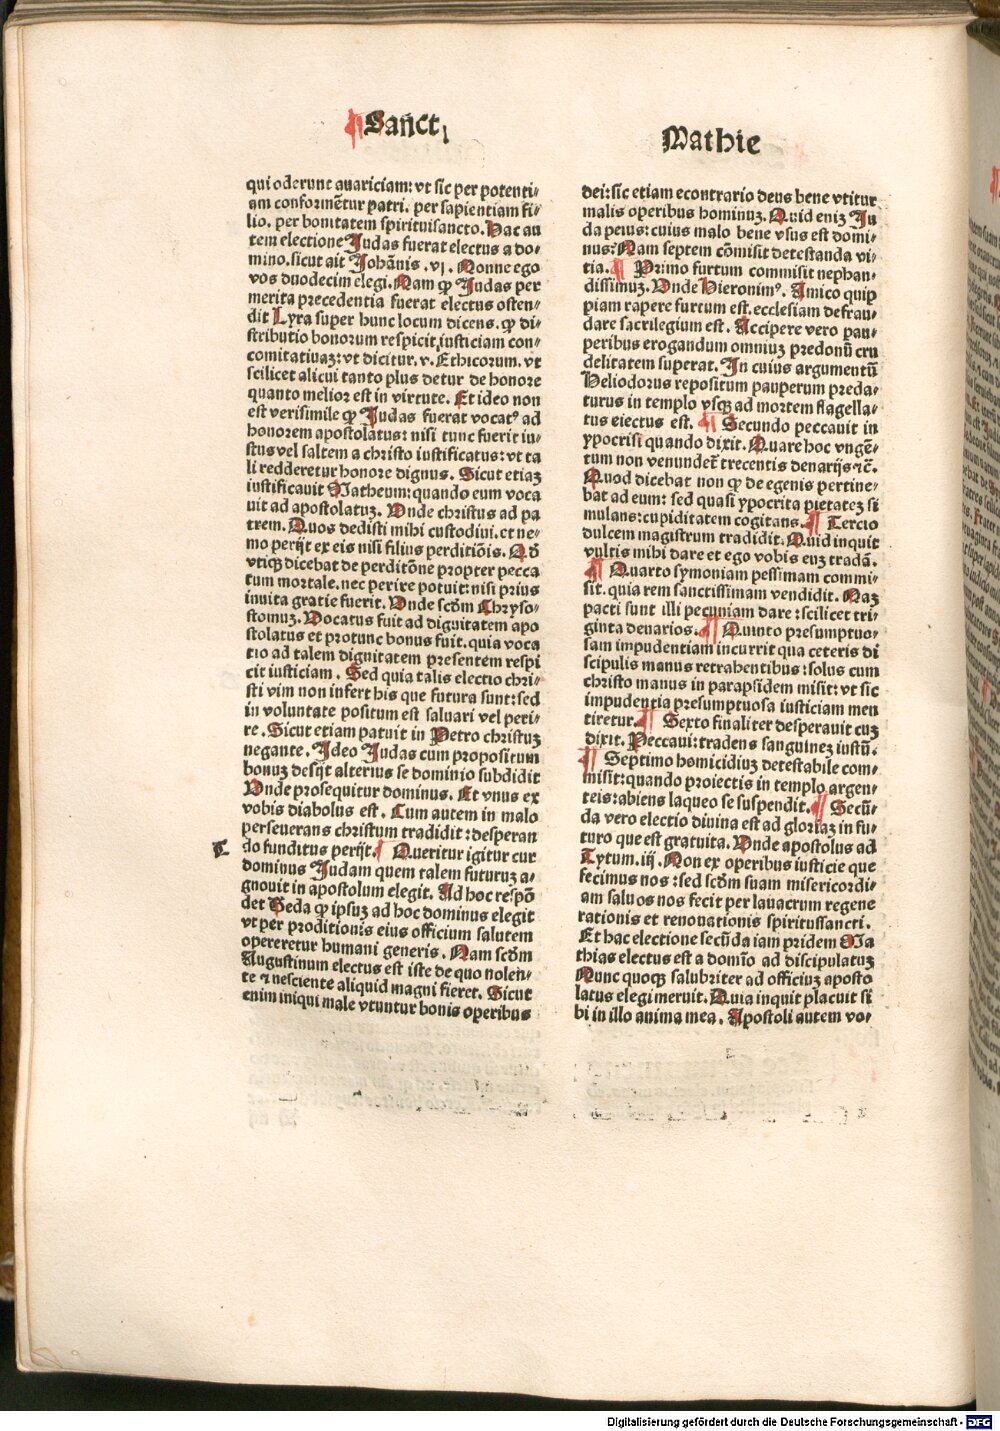 ¶ Sancti
Mathie
qui oderunt auariciam: vt sic per potenti⸗
am conformētur patri. per sapientiam fi⸗
lio. per bonitatem spirituisancto. Hac au
tem electione Judas fuerat electus a do⸗
mino. sicut ait Johānis .vj. Nonne ego
vos duodecim elegi. Nam ꝙ Judas per
merita precedentia fuerat electus osten⸗
dit Lyra super hunc locum dicens. ꝙ di⸗
stributio bonorum respicit iusticiam con⸗
comitatiuaꝫ: vt dicitur .v. Ethicorum. vt
scilicet alicui tanto plus detur de honore
quanto melior est in virtute. Et ideo non
est verisimile ꝙ Judas fuerat vocatꝰ ad
honorem apostolatus: nisi tunc fuerit iu⸗
stus vel saltem a christo iustificatus: vt ta
li redderetur honore dignus. Sicut etiaꝫ
iustificauit Matheum: quando eum voca
uit ad apostolatuꝫ. Vnde christus ad pa
trem. Quos dedisti mihi custodiui. et ne⸗
mo perijt ex eis nisi filius perditiōis. Ad
vtiqꝫ dicebat de perditōne propter pecca
tum mortale. nec perire potuit: nisi prius
in vita gratie fuerit. Vnde scd̄m Chryso⸗
stomuꝫ. Vocatus fuit ad dignitatem apo
stolatus et protunc bonus fuit. quia voca
tio ad talem dignitatem presentem respi
cit iusticiam. Sed quia talis electio chri⸗
sti vim non infert his que futura sunt: sed
in voluntate positum est saluari vel peri⸗
re. Sicut etiam patuit in Petro christuꝫ
negante. Ideo Judas cum propositum
bonuꝫ desijt alterius se dominio subdidit
Vnde prosequitur dominus. Et vnus ex
vobis diabolus est. Cum autem in malo
perseuerans christum tradidit: desperan
C do funditus perijt. ¶ Queritur igitur cur
dominus Judam quem talem futuruꝫ a⸗
gnouit in apostolum elegit. Ad hoc respō
det Beda ꝙ ipsuꝫ ad hoc dominus elegit
vt per proditionis eius officium salutem
opereretur humani generis. Nam scd̄m
Augustinum electus est iste de quo nolen⸗
te ⁊ nesciente aliquid magni fieret. Sicut
enim iniqui male vtuntur bonis operibus
dei: sic etiam econtrario deus bene vtitur
malis operibus hominuꝫ. Quid eniꝫ Ju
da peius: cuius malo bene vsus est domi⸗
nus: Nam septem cōmisit detestanda vi⸗
tia. ¶ Primo furtum commisit nephan⸗
dissimuꝫ. Vnde Hieronimꝰ. Amico quip
piam rapere furtum est. ecclesiam defrau⸗
dare sacrilegium est. Accipere vero pau⸗
peribus erogandum omniuꝫ predonū cru
delitatem superat. In cuius argumentū
Heliodorus repositum pauperum preda⸗
turus in templo vsqꝫ ad mortem flagella⸗
tus eiectus est. ¶ Secundo peccauit in
ypocrisi quando dixit. Quare hoc vngē⸗
tum non venundet̄ trecentis denarijs ⁊c̄.
Quod dicebat non ꝙ de egenis pertine⸗
bat ad eum: sed quasi ypocrita pietateꝫ si
mulans: cupiditatem cogitans. ¶ Tercio
dulcem magistrum tradidit. Quid inquit
vultis mihi dare et ego vobis euꝫ tradā.
¶ Quarto symoniam pessimam commi⸗
sit. quia rem sanctissimam vendidit. Naꝫ
pacti sunt illi pecuniam dare: scilicet tri⸗
ginta denarios. ¶ Quinto presumptuo⸗
sam impudentiam incurrit qua ceteris di
scipulis manus retrahentibus: solus cum
christo manus in parapsidem misit: vt sic
impudentia presumptuosa iusticiam men
tiretur. ¶ Sexto finaliter desperauit cuꝫ
dixit. Peccaui: tradens sanguineꝫ iustū.
¶ Septimo homicidiuꝫ detestabile com⸗
misit: quando proiectis in templo argen⸗
teis: abiens laqueo se suspendit. ¶ Secū⸗
da vero electio diuina est ad gloriaꝫ in fu⸗
turo que est gratuita. Vnde apostolus ad
Tytum .iij. Non ex operibus iusticie que
fecimus nos: sed scd̄m suam misericordi⸗
am saluos nos fecit per lauacrum regene
rationis et renouationis spiritussancti.
Et hac electione secūda iam pridem Ma
thias electus est a domīo ad discipulatuꝫ
Nunc quoqꝫ salubriter ad officiuꝫ aposto
latus elegi meruit. Quia inquit placuit si
bi in illo anima mea. Apostoli autem vo⸗
Digitalisierung gefördert durch die Deutsche Forschungsgemeinschaft - DFG